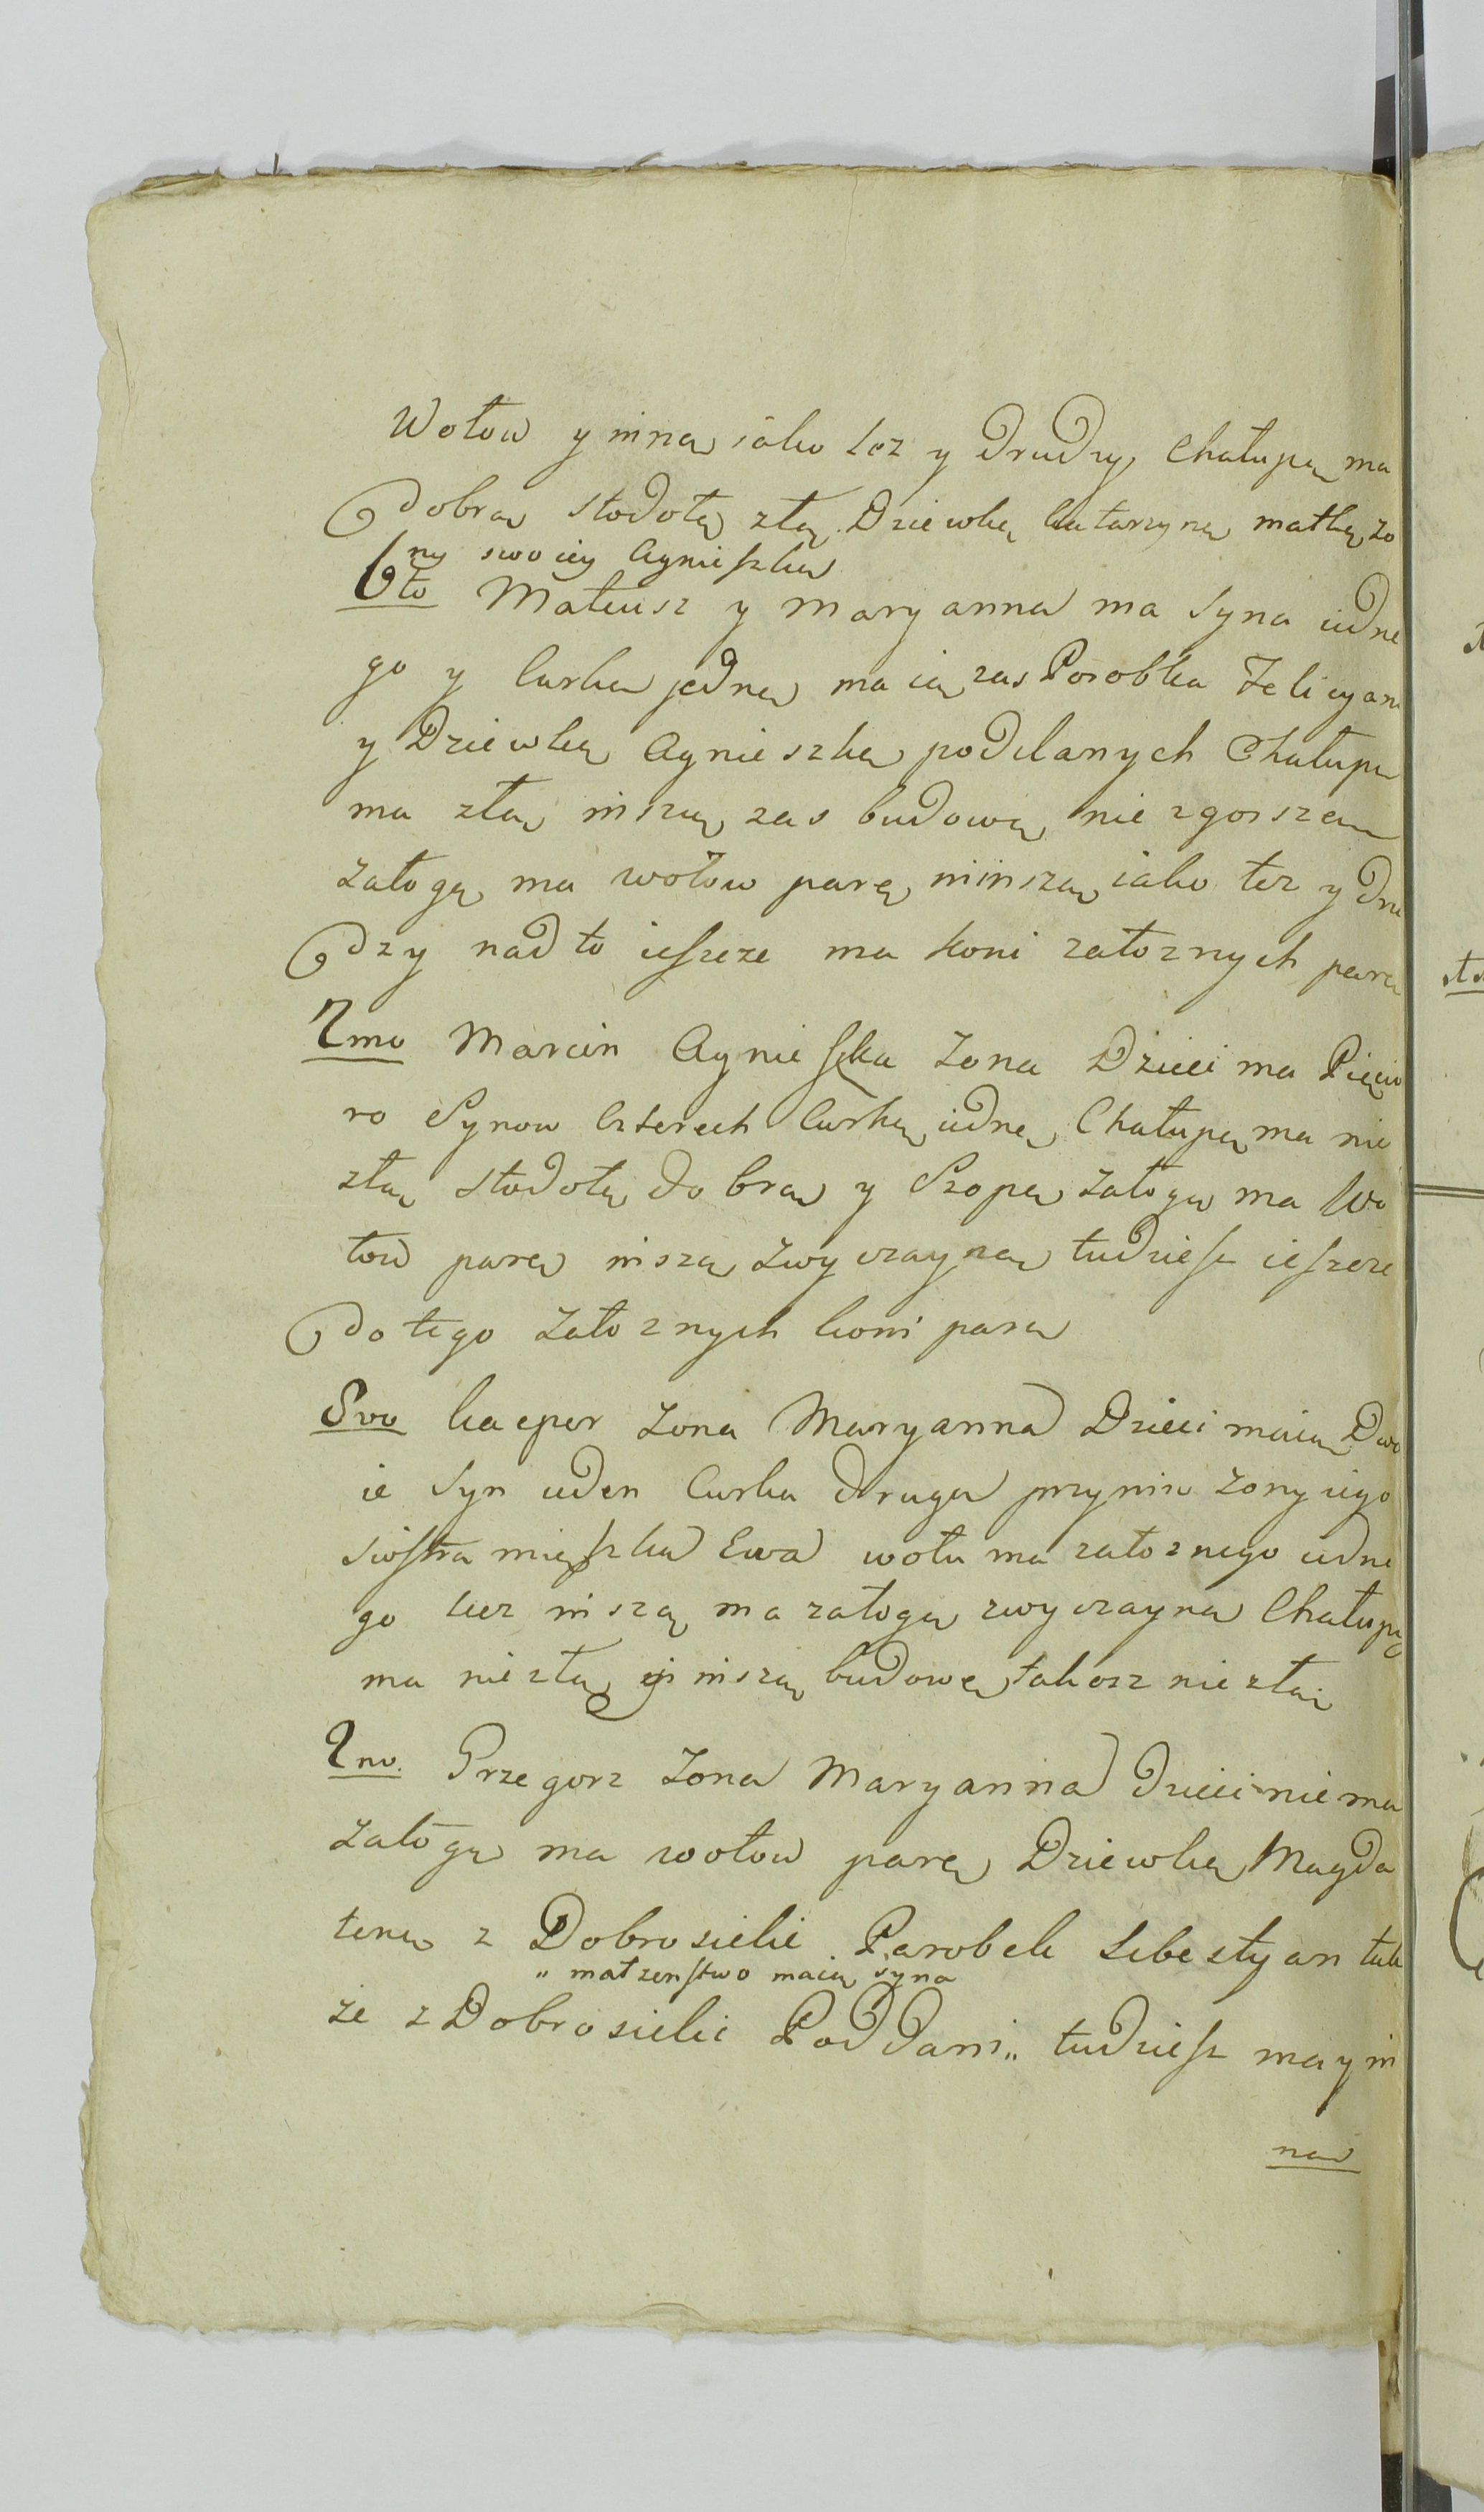 Wołow y inną iako tez y Drudzy, Chałupę ma
dobrą stodołę złą. Dziewkę Katarzynę matkę żo
ny swoiey Agnieszkę
6to Mateusz y Maryanna ma Syna iedne
go y Curkę jedną maią zas Parobka Felicyan
y Dziewkę Agnieszkę poddanych Chałupę
ma złą inszą zas budowę nie zgorszą
załogę ma wołow parę ninszą iako tez y dru
dzy nad to ieszcze ma koni załoznych parę
7mo Marcin Agnieszka Zona Dzieci ma Pięcio
ro Synow Czterech Curkę iednę, Chałupę ma nie
złą stodołę dobrą y Szopę załogę ma Wo
łow parę inszą zwyczayną tudziesz ieszcze
do tego załoznych koni parę
8vo Kacper Zona Maryanna Dzieci maią Dwo
ie Syn ieden Curka druga przy niw zony iego
siostra mięszka Ewa wołu ma załoznego iedne
go lecz inszą ma załogę zwyczayną Chałupę
ma niezłą y inszą budowę takosz niezłą
9no. Grzegorz Zona Maryanna dzieci nie ma
załogę ma wołow parę Dziewkę Magda
lenę z Dobrosielic Parobek Sebestyan tak
" matzenstwo maią syna
ze z Dobrosielic Poddani " tudziesz ma y in
ną